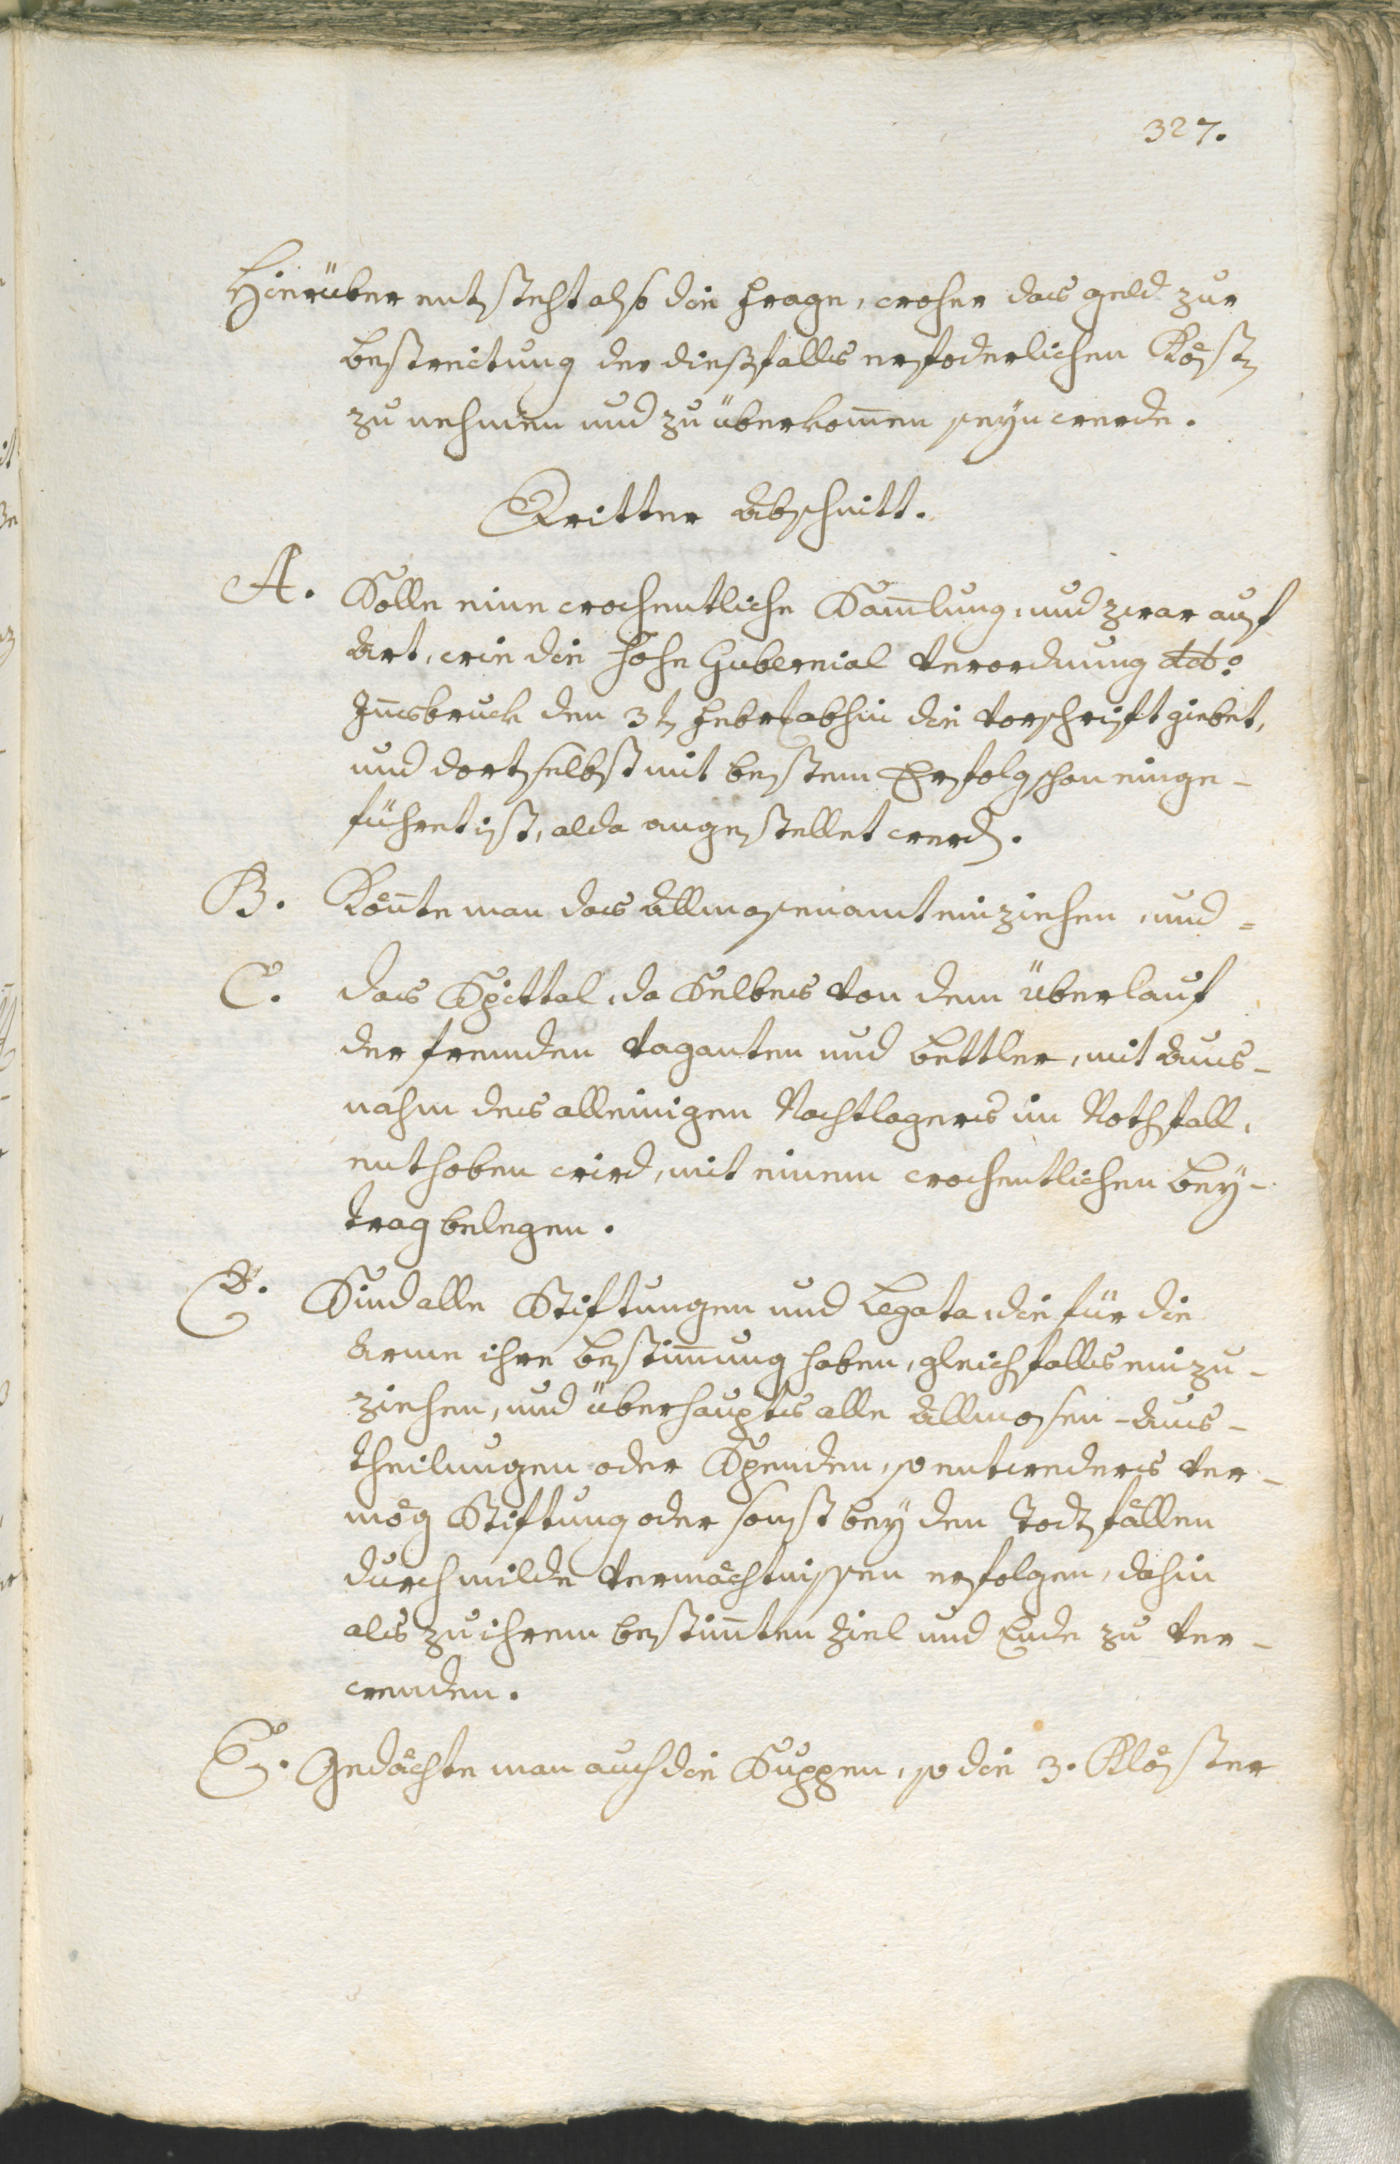 327.
Hierüber entstehet also die Frage, woher das geld zur
bestreitung der dießfalls erfoderlichen Kösten
zu nehmen und zu überkom̄en seÿn werde.
Dritter Abschnitt.
A. Solle eine wochentliche Sam̄lung, und zwar auf
Art, wie die hohe Gubernial Verordnung ddo.
Jn̄sbruck den 3t Febr abhin die Vorschrift giebet,
und dortselbst mit bestem Erfolg schon einge-
führet ist, alda angestellet werden.
B. Kön̄te man das Allmosenamt einziehen, und =
C. das Spittal, da Selbes von dem überlauf
der fremden Vaganten und bettler, mit Aus-
nahm des alleinigen Nachtlagers im Nothfall,
enthoben wird, mit einem wochentlichen beÿ-
trag belegen.
D. Sind alle Stiftungen und Legata, die für die
Arme ihre bestim̄ung haben, gleichfalls einzu-
ziehen, und überhaupts alle Allmosen-Aus-
theilungen oder Spenden, so entweders ver-
mög Stiftung oder sonst beÿ den Todtfällen
durch milde Vermächtnissen erfolgen, dahin
als zu ihrem bestim̄ten Ziel und Ende zu ver-
wenden.
E. Gedächte man auch die Suppen, so die 3. Klöster